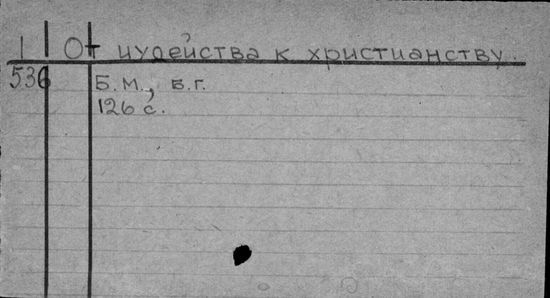 I От иудейства к христианству.
536 Б.М., Б.Г.
126 с.